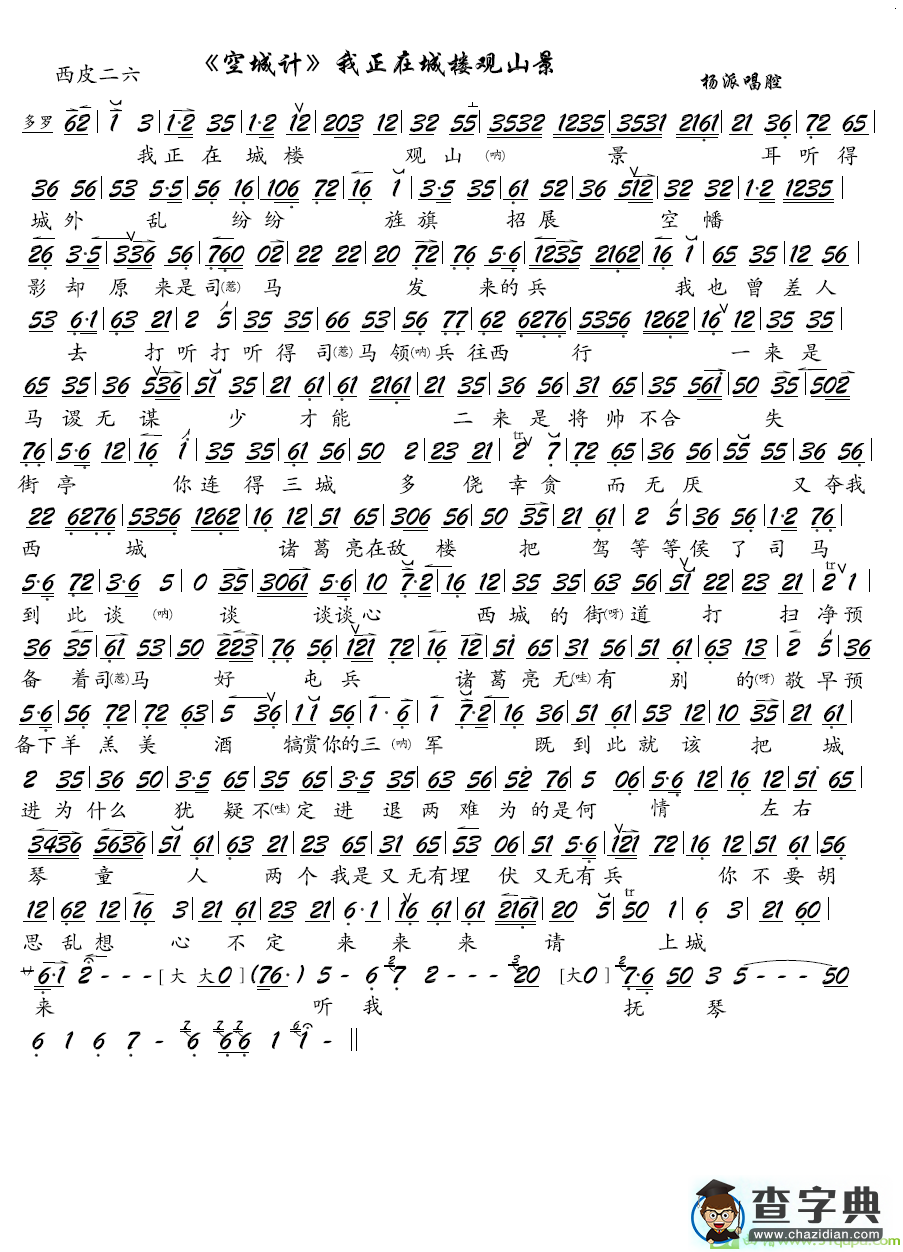 《空城计》我正在城楼观山景
西皮二六
杨派唱腔
多罗 62| i 3 |1·2 35 |1·2 12 |203 12 |32 55 |3532 1235|3531 2161| 21 36|72 65|
我正在 城楼 观山(呐) 景 耳听得
36 56|53 5·5|56 16|106 72|16 1 |3·5 35|61 52|36 512|32 32|1·2 1235|
城外 乱 纷纷 旌旗 招展 空幡
26 3·5|336 56|760 02|22 22|20 72|76 5·6|1235 2162|16 1|65 35|12 56|
影却原来是司(惹)马 发 来的兵 我也曾差人
53 6·1|63 21|2 5|35 35|66 53|56 77|62 6276|5356 1262|16 12|35 35|
去 打听打听得司(惹)马领(呐)兵往西 行 一来是
65 35|36 536|51 35|21 61|61 2161|21 35|36 56|31 65|35 561|50 35|502
马谡无谋 少 才能 二来是将帅不合 失
76|5·6 12|16 1|35 35|61 56|50 2|23 21|2 7|72 65|36 56|55 55|36 56|
街亭 你连得三城 多 侥幸贪 而无厌 又夺我
22 6276|5356 1262|16 12|51 65|306 56|50 35|21 61|2 5|36 56|1·2 76|
西 城 诸葛亮在敌楼 把 驾等等侯了司马
5·6 72|3·6 5|0 35|3061 5·6|10 7·2|16 12|35 35|63 56|51 22|23 21|2 1|
到此谈(呐) 谈 谈谈心 西城的街(呀)道 打 扫净预
36 35|61 53|50 223|76 56|121 72|16 12|51 65|31 56|51 61|63 13|2 5|36
备 着司(惹)马 好 屯兵 诸葛亮无(哇)有 别 的(呀)敬早预
5·6|56 72|72 63|5 36|11 56|1·6|1 7·2|16 36|51 61|53 12|10 35|21 61|
备下羊羔美 酒 犒赏你的三(呐)军 既到此就该把 城
2 35|36 50|3·5 65|35 65|3·5 65|63 56|52 76|5 06|5·6 12|16 12|51 65|
进为什么 犹疑不(哇)定进退两难为的是何 情 左右
3436 5636|51 61|63 21|23 65|31 65|53 06|51 5·6|121 72|16 12|51 61|56
琴童 人 两个我是又无有埋伏又无有兵 你不要胡
12|62 12|16 3|21 61|21 23|6·1|16 61|61 2161|20 5|50 1|6 3|21 60|
思乱想 心不定 来来来 请 上城
サ 6·1 2 - - - [大 大0] (76·) 5 - 6 7 2 - - - 20 [大0] 7·6 50 3 5 - - - 50
来 听我 抚琴
6 1 6 7 - 6 66 1 1 - ||
查字典
www.chazidian.com